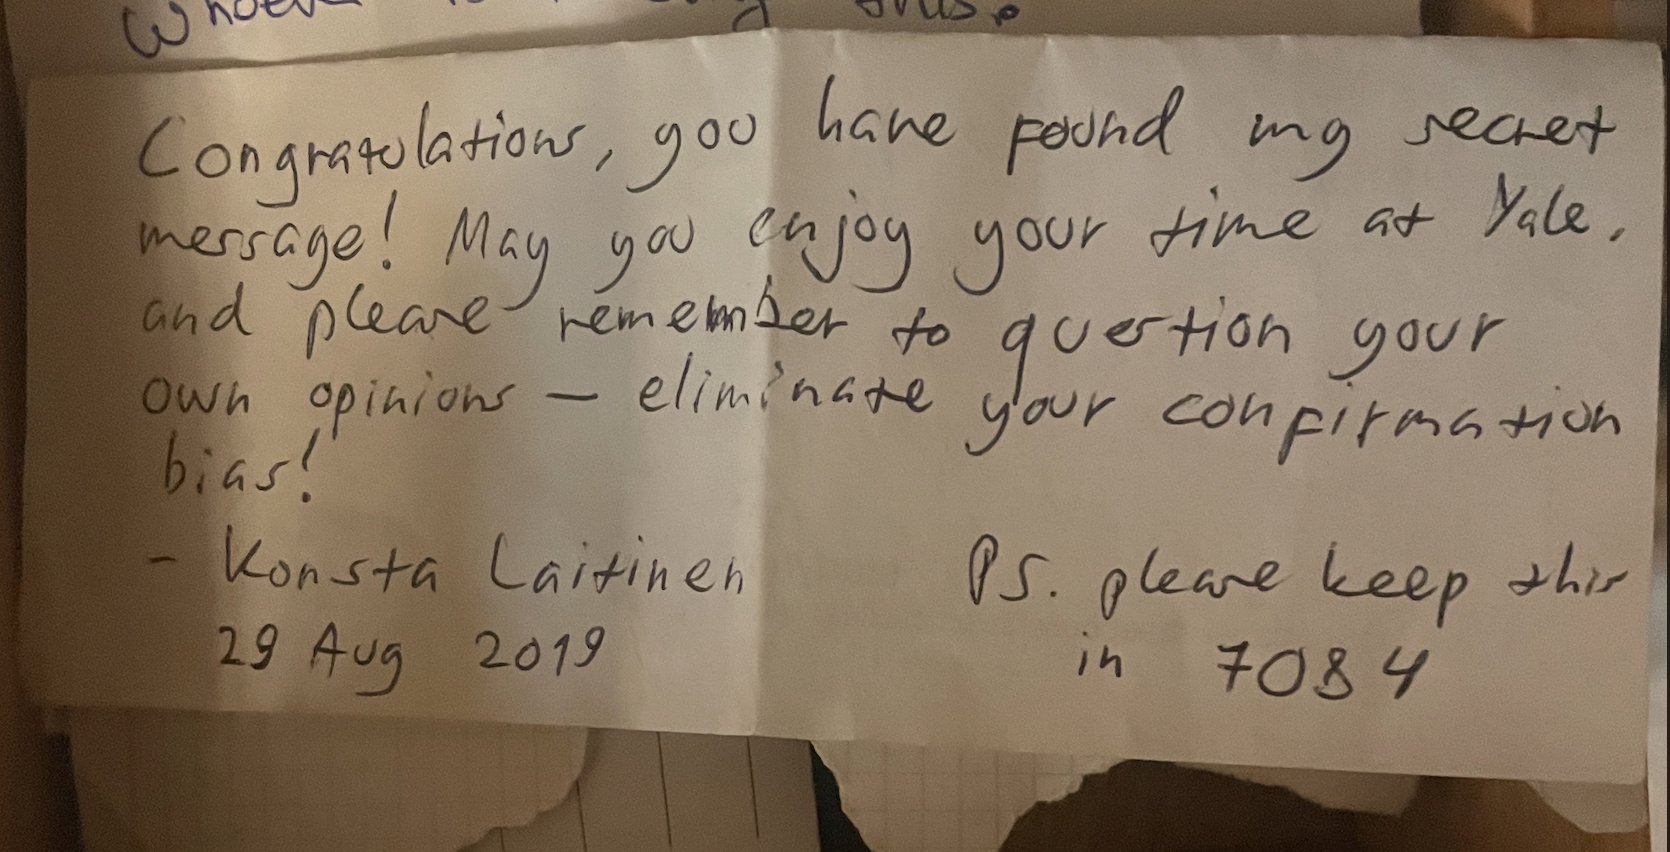 this.
Congratulations, you have found my secret
message! May you enjoy your time at Yale,
and please remember to question your
own opinions — eliminate your confirmation
bias!
- Konsta Laitinen
29 Aug 2019
PS. please keep this
in 7084